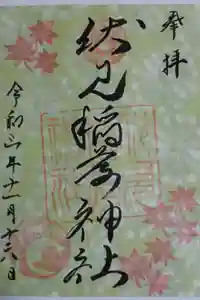 奉拝
伏見稲荷神社
令和三年十一月十六日